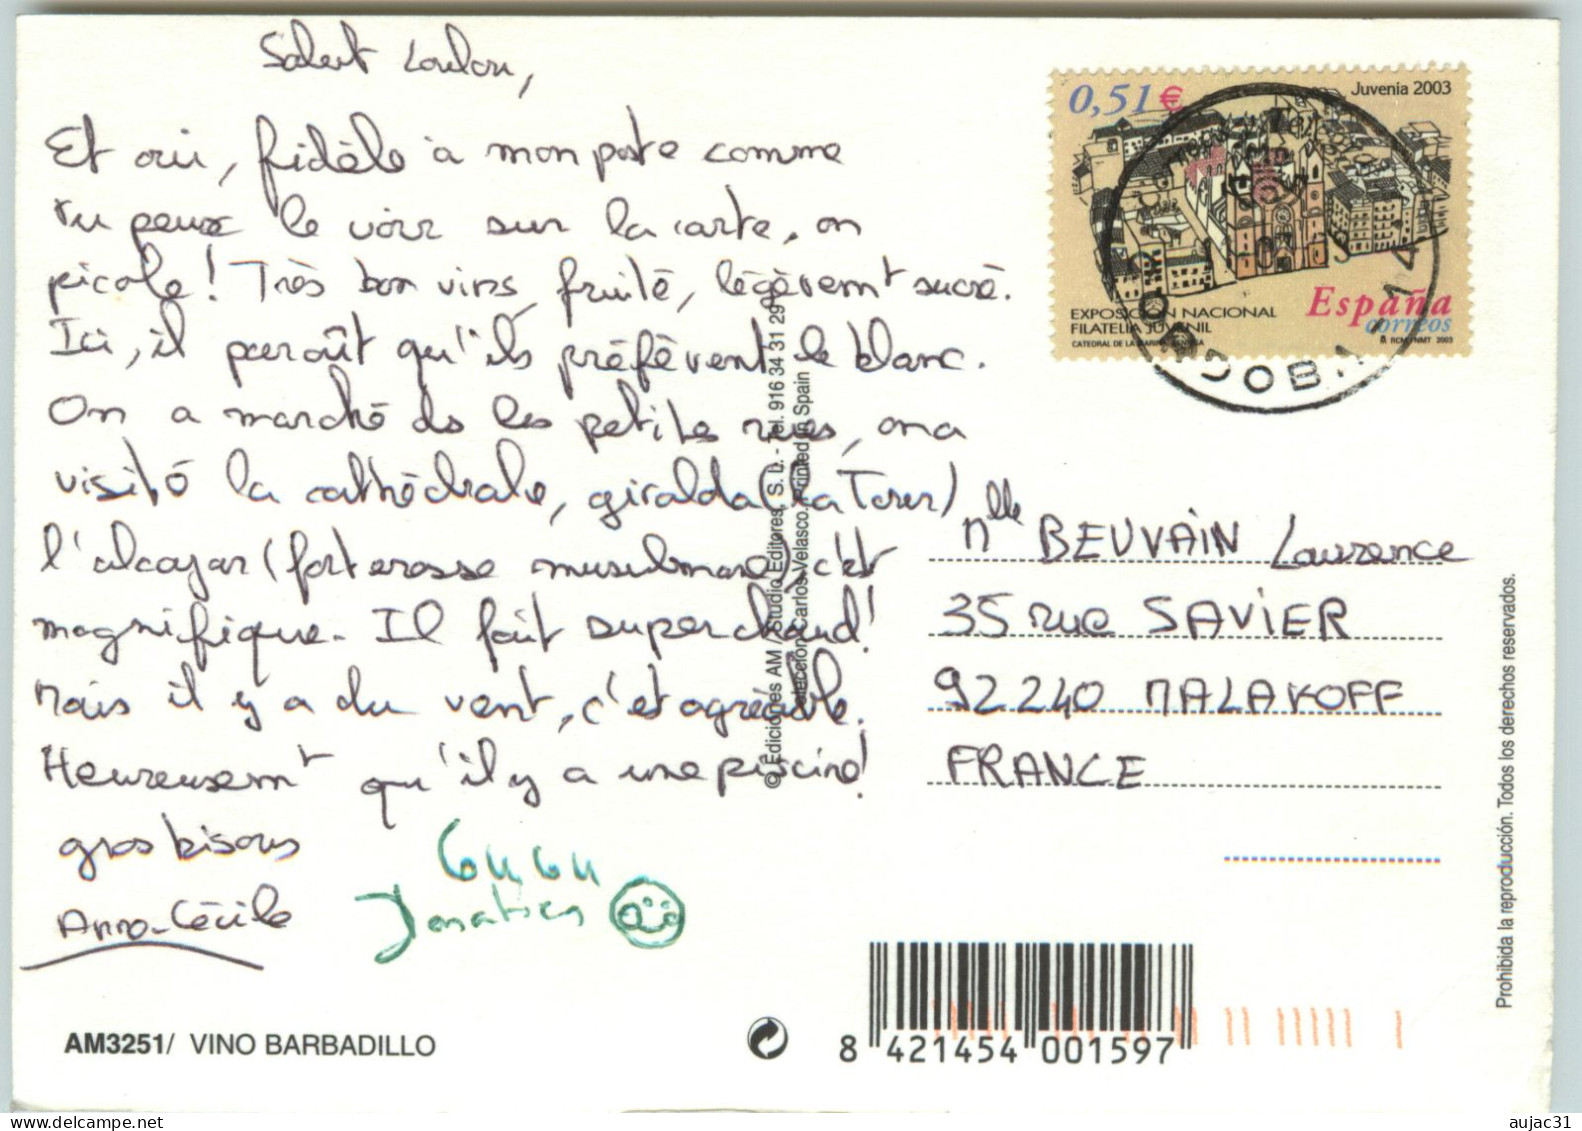 Salut Loulou,
Et oui, fidèle à mon poste comme
tu peux le voir sur la carte, on
picole! Très bon vins, fruité, légèremt sucré.
Ici, il paraît qu'ils préfèrent le blanc.
On a marché ds les petites rues, on a
visité la cathédrale, giralda (La Torre)
l'alcazar (forteresse musulmane), c'est
magnifique. Il fait super chaud!
Mais il y a du vent, c'est agréable.
Heureusemt qu'il y a une piscine!
gros bisous
Anne-Cécile
Donatien
0,51 €
Juvenia 2003
EXPOSICIÓN NACIONAL
FILATELIA JUVENIL
España
correos
RCM-FNMT 2003
Mlle BEUVAIN Laurence
35 rue SAVIER
92240 MALAKOFF
FRANCE
© Ediciones AM / Studio Editores, S. L. - Tel. 916 34 31 29
Selección Carlos Velasco. Printed in Spain
Prohibida la reproducción. Todos los derechos reservados.
AM3251/ VINO BARBADILLO
8 421454 001597
aujac31